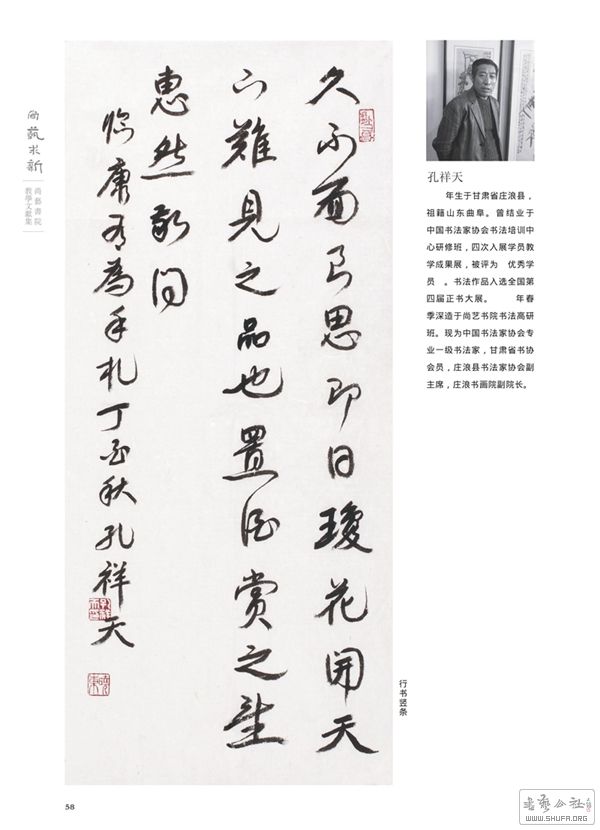 尚藝求新
尚藝書院
教學文獻集
久不面可思即日瓊花開天
下難見之品也置酒賞之望
惠然敬问
临康有為手札丁酉秋孔祥天
孔祥天
年生于甘肃省庄浪县，
祖籍山东曲阜。曾结业于
中国书法家协会书法培训中
心研修班，四次入展学员教
学成果展，被评为 优秀学
员 。书法作品入选全国第
四届正书大展。 年春
季深造于尚艺书院书法高研
班。现为中国书法家协会专
业一级书法家，甘肃省书协
会员，庄浪县书法家协会副
主席，庄浪书画院副院长。
行书竖条
58
書藝公社
WWW.SHUFA.ORG